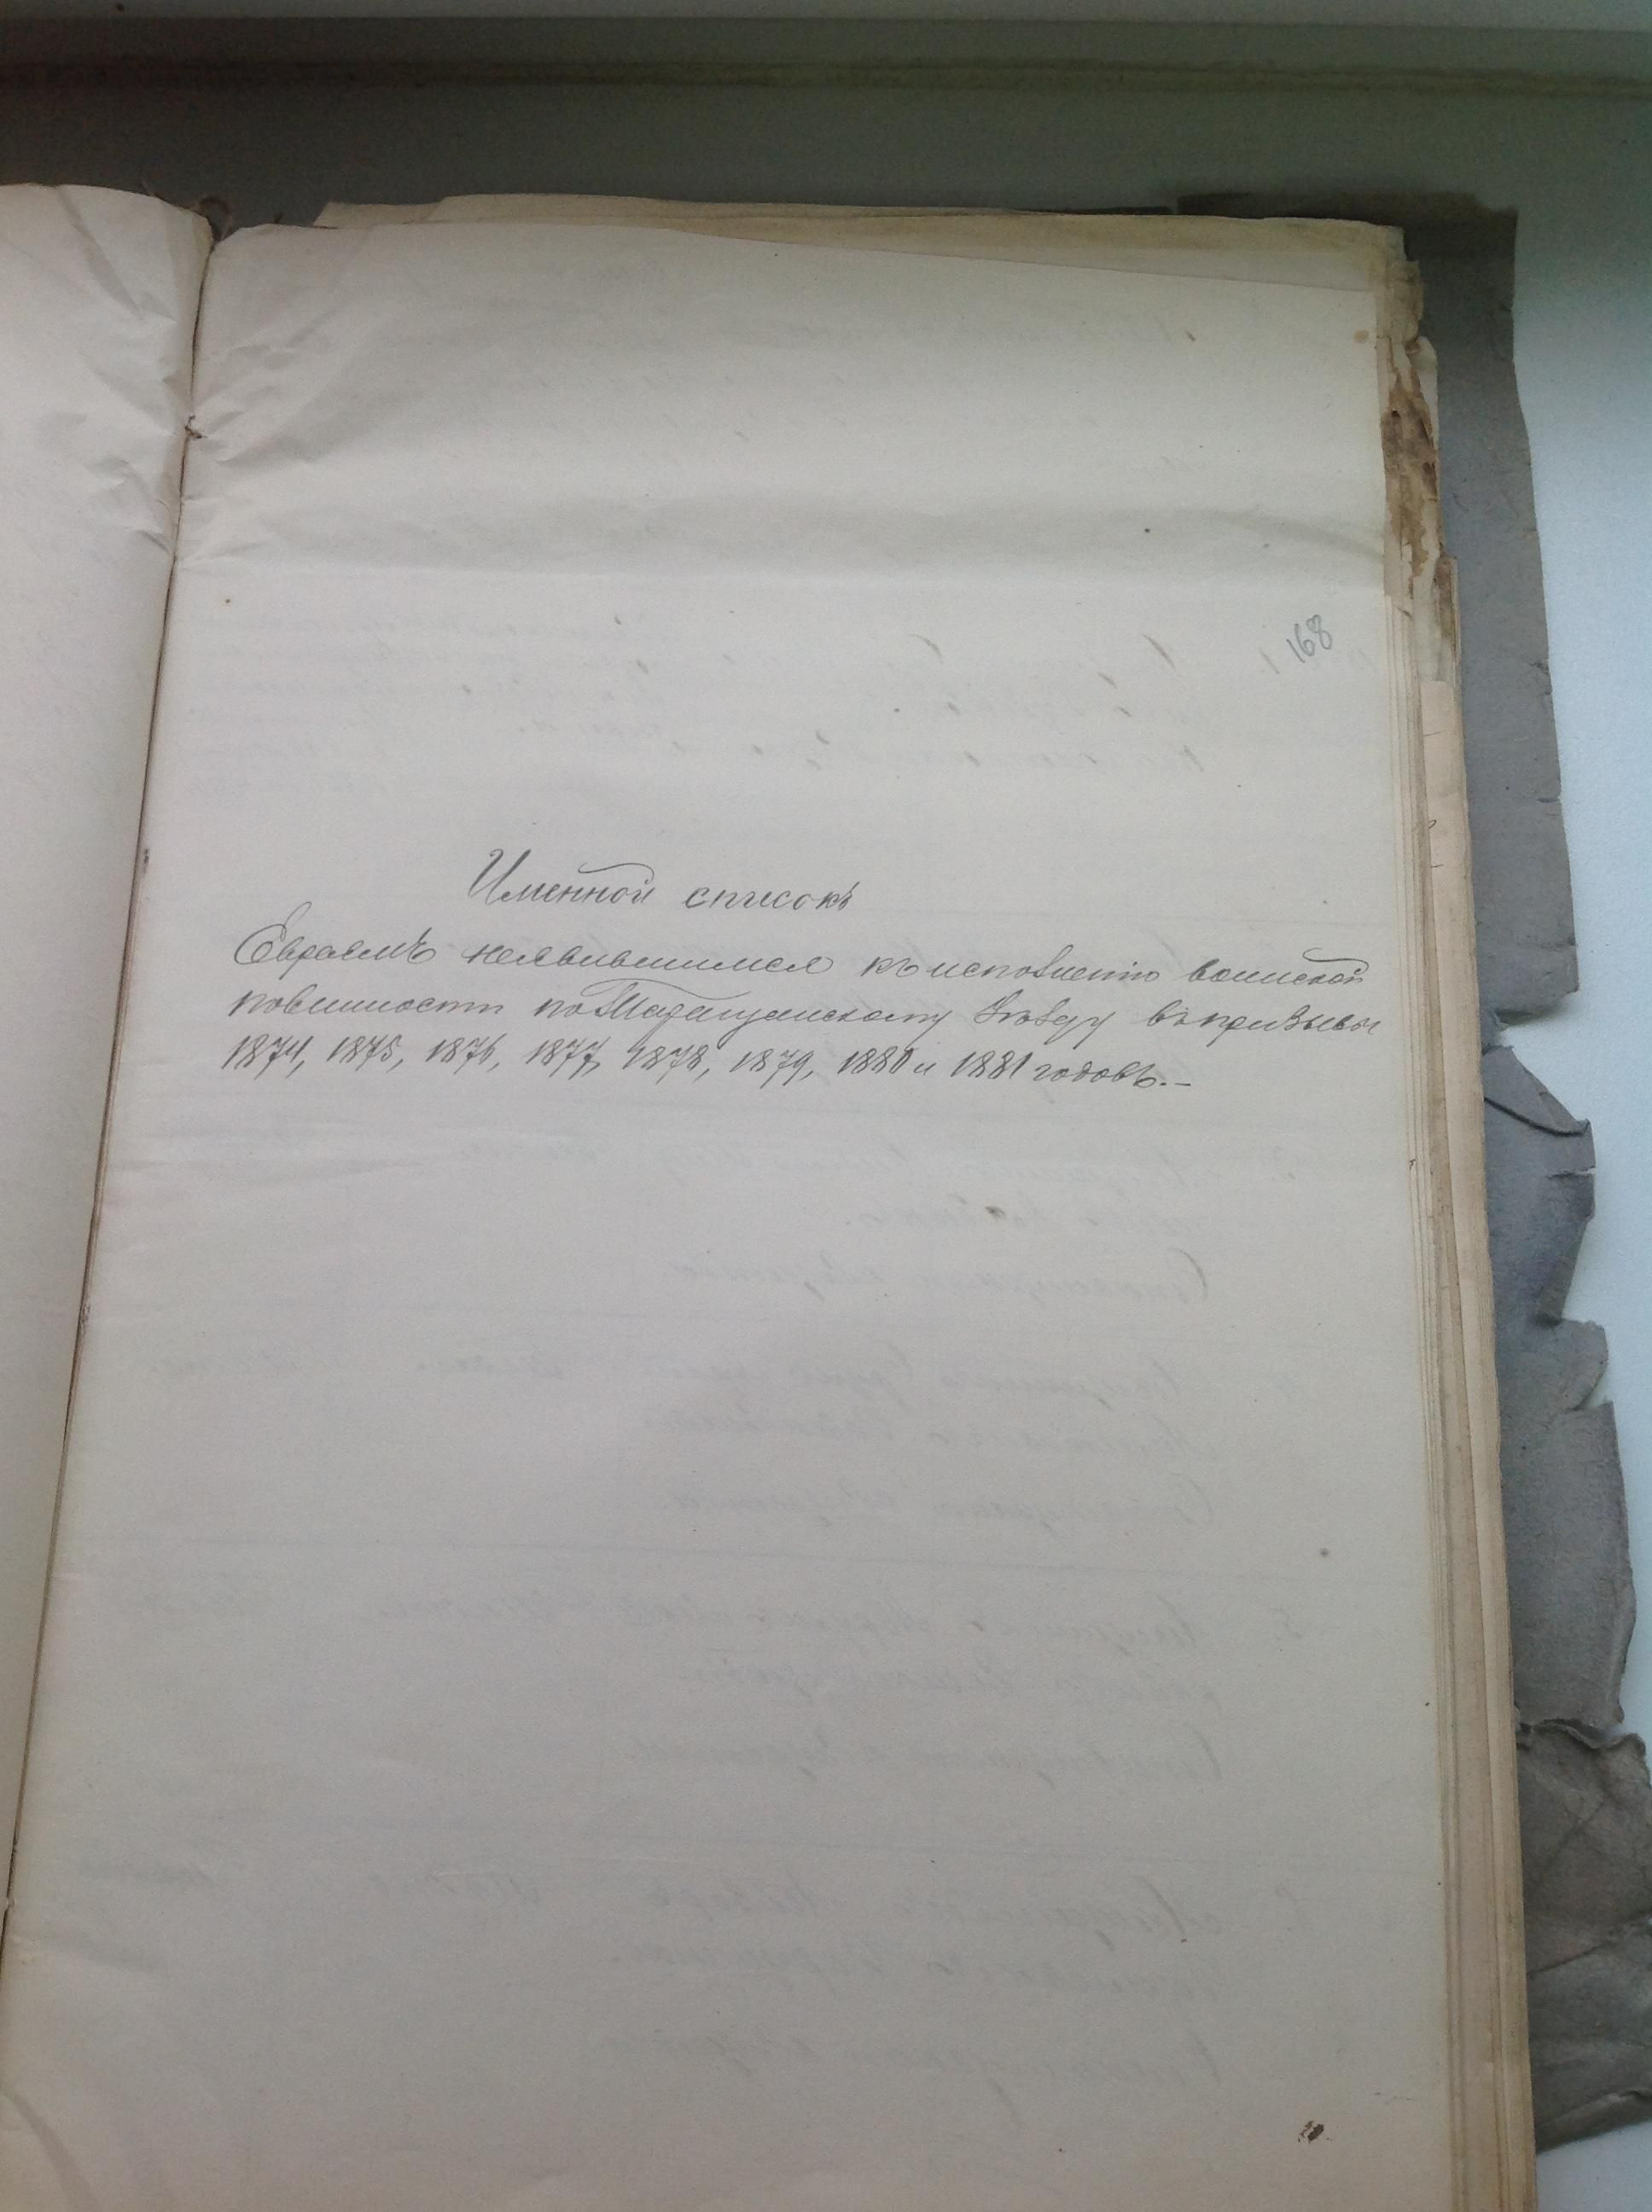 168
Именной списокъ
Евреямъ неявившимся къ исполненію воинской
повинности по Таращанскому уѣзду въ призывы
1874, 1875, 1876, 1877, 1878, 1879, 1880 и 1881 годовъ.–